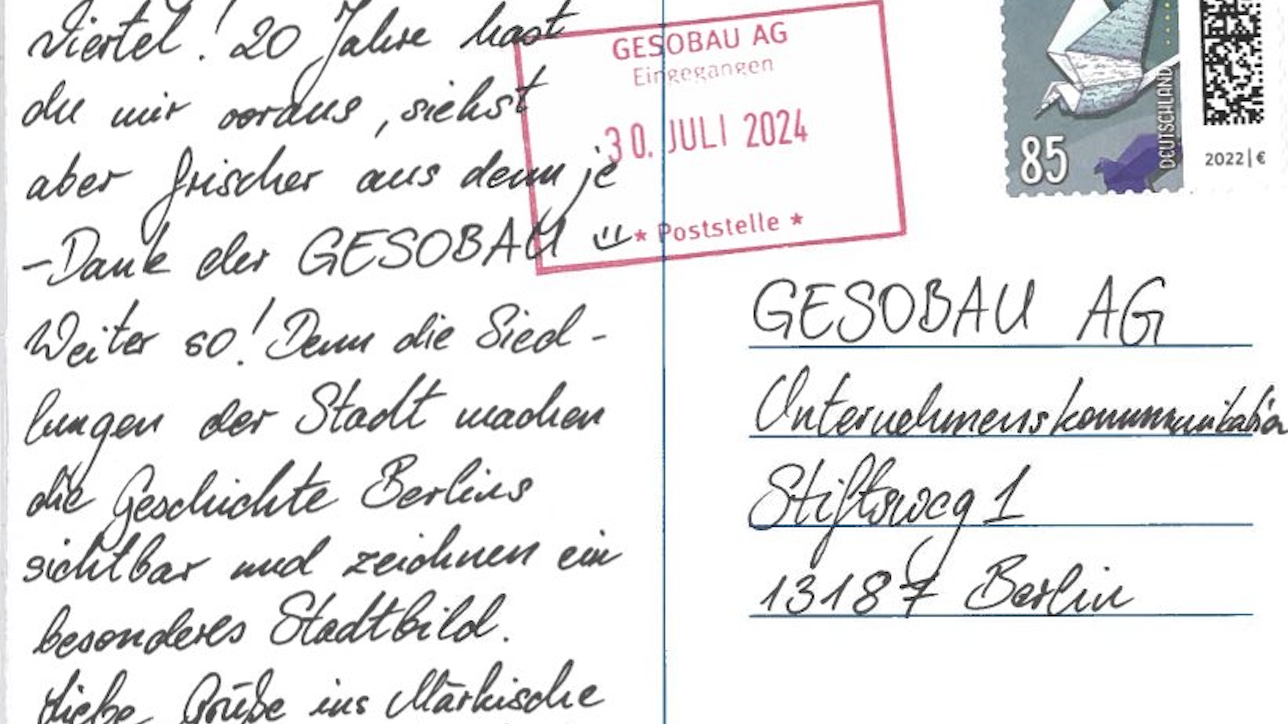 Viertel! 20 Jahre hast
du mir voraus, siehst
aber frischer aus denn je
-Dank der GESOBAU
Weiter so! Denn die Sied-
lungen der Stadt machen
die Geschichte Berlins
sichtbar und zeichnen ein
besonderes Stadtbild.
Liebe Grüße ins Märkische
GESOBAU AG
Eingegangen
30. JULI 2024
* Poststelle *
85
DEUTSCHLAND
2022|€
GESOBAU AG
Unternehmenskommunikation
Stiftsweg 1
13187 Berlin